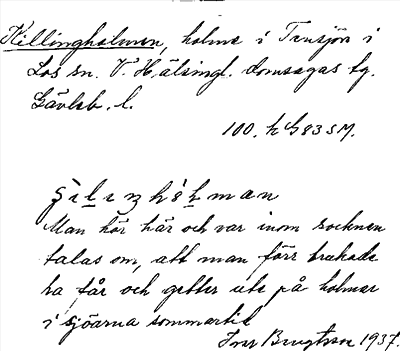 Killingholmen, holme i Tensjön i
Los sn. V. Hälsingl. domsagas tg.
Gävleb. l.
100. h G 83 SM.
Man hör här och var inom socknen
talas om, att man förr brukade
ha får och getter ute på holmar
i sjöarna sommartid
Ivar Bengtsson 1937.